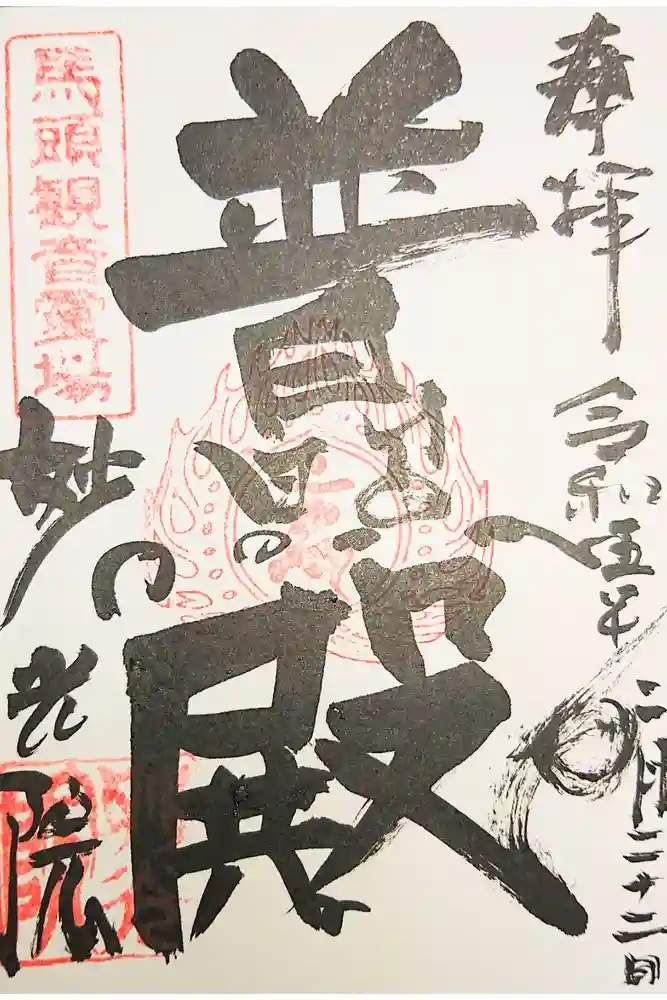 奉拝
令和五年二月二十二日
普門殿
馬頭観音霊場
妙光院